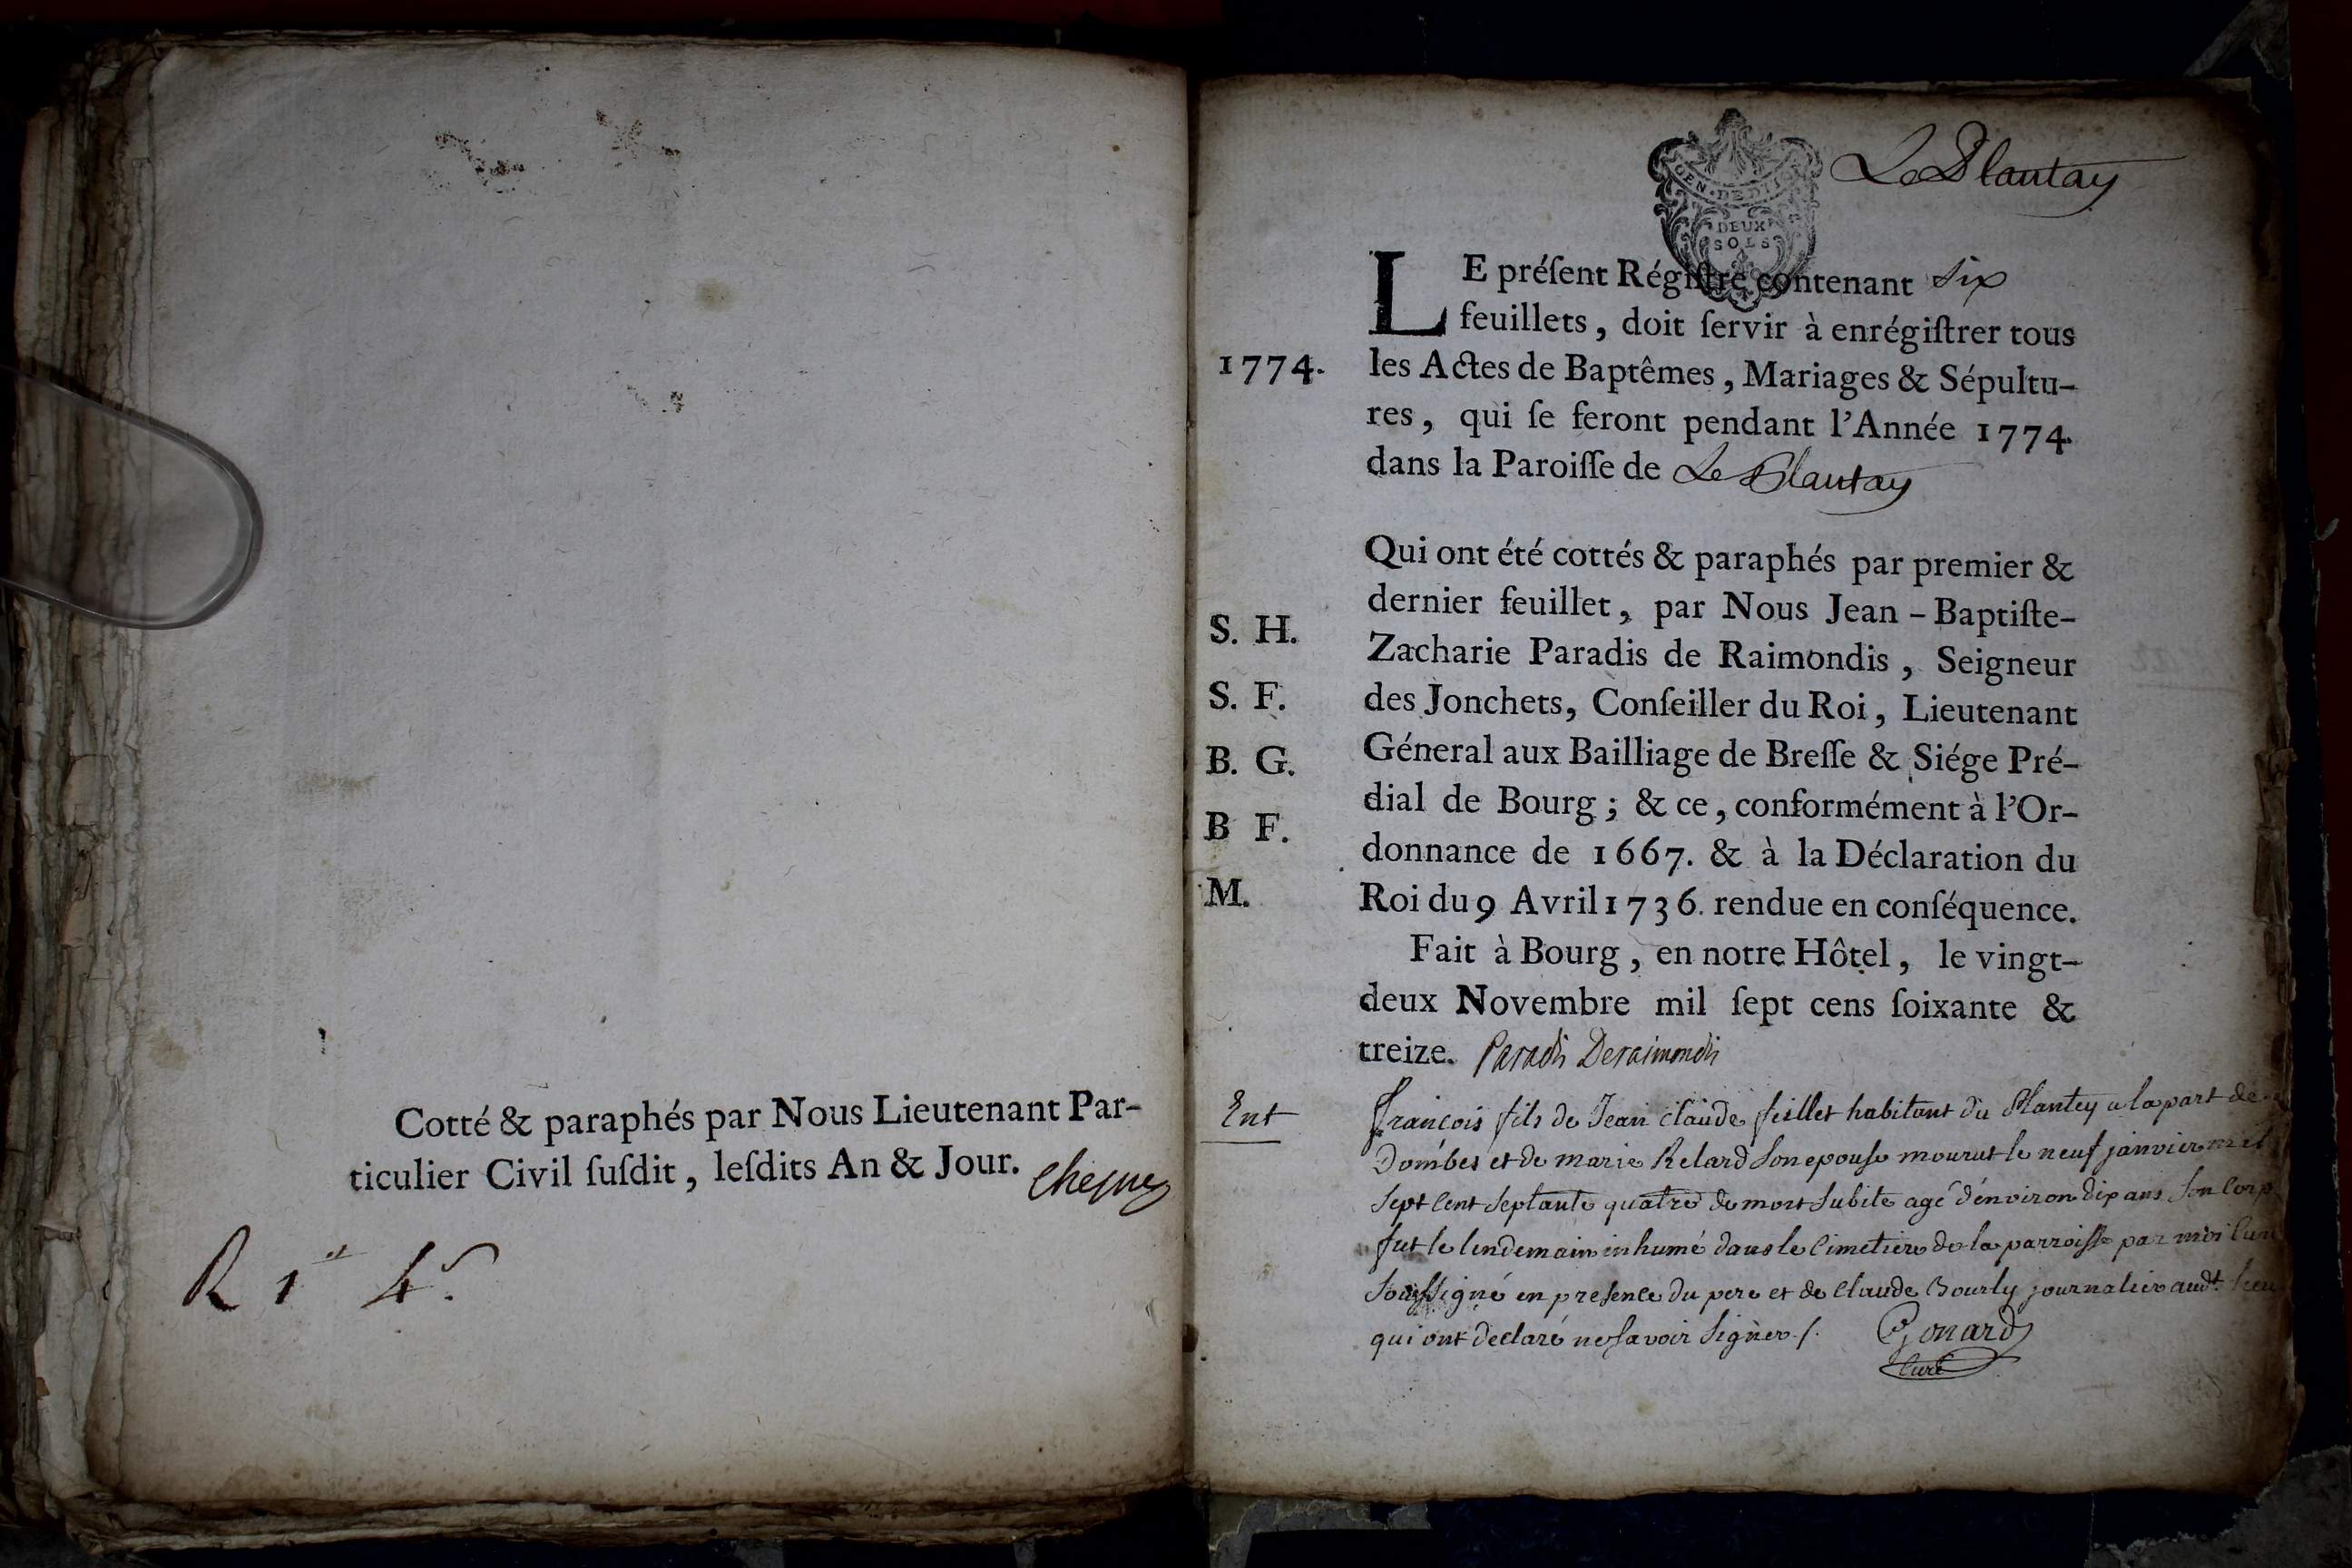 Cotté & paraphés par Nous Lieutenant Par-
ticulier Civil ſuſdit, leſdits An & Jour.
R 1 4
Le Plantay
GEN. DE DIJON
DEUX
SOLS
LE préſent Régiſtre contenant six
feuillets, doit ſervir à enrégiſtrer tous
1774. les Actes de Baptêmes, Mariages & Sépultu-
res, qui ſe feront pendant l'Année 1774.
dans la Paroiſſe de Le Plantay
Qui ont été cottés & paraphés par premier &
dernier feuillet, par Nous Jean-Baptiſte-
S. H. Zacharie Paradis de Raimondis, Seigneur
S. F. des Jonchets, Conſeiller du Roi, Lieutenant
B. G. Géneral aux Bailliage de Breſſe & Siége Pré-
B F. dial de Bourg; & ce, conformément à l'Or-
donnance de 1667. & à la Déclaration du
M. Roi du 9 Avril 1736. rendue en conſéquence.
Fait à Bourg, en notre Hôtel, le vingt-
deux Novembre mil ſept cens ſoixante &
treize. Paradis Deraimondis
Ent françois fils de Jean claude feillet habitant du Plantey a la part de
Dombes et de marie Relard son epouse mourut le neuf janvier mil
sept cent septante quatre de mort subite agé d'environ dix ans son corp
fut le lendemain inhumé dans le cimetiere de la parroisse par moi
soussigné en presence du pere et de claude Bourly journalier audt lieu
qui ont declaré ne savoir signer /. Gonard
curé